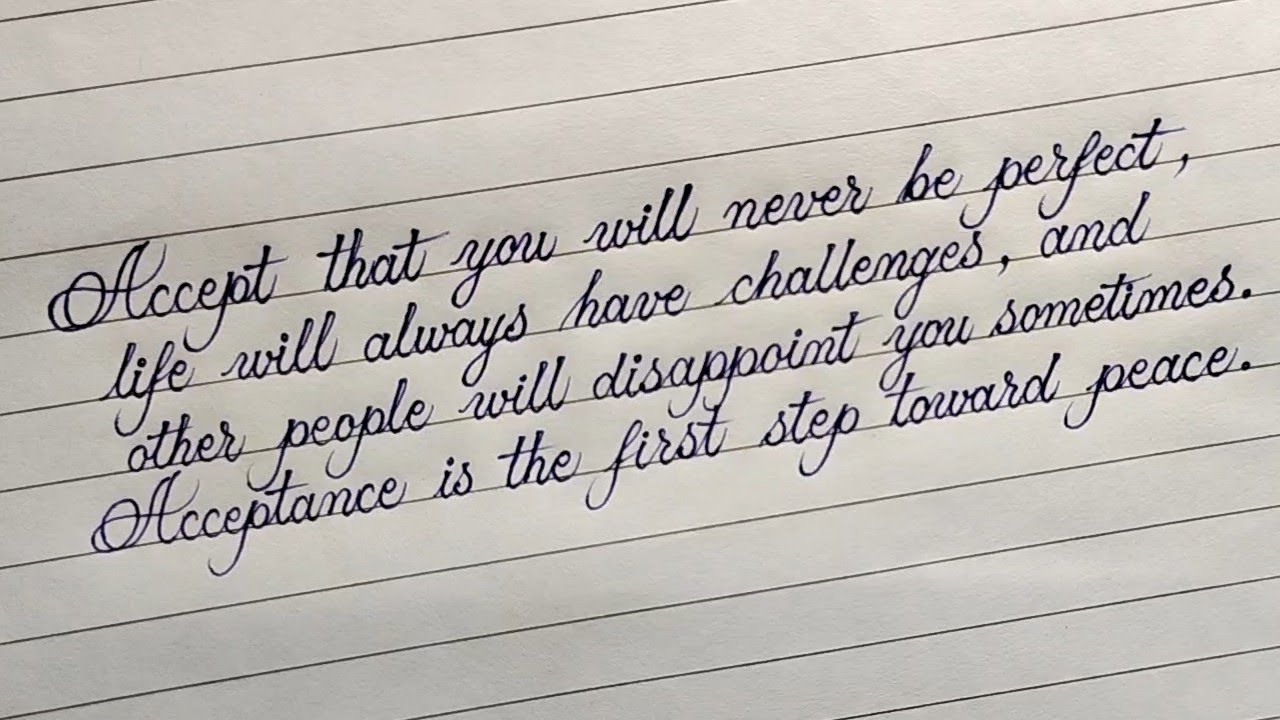 Accept that you will never be perfect,
life will always have challenges, and
other people will disappoint you sometimes.
Acceptance is the first step toward peace.